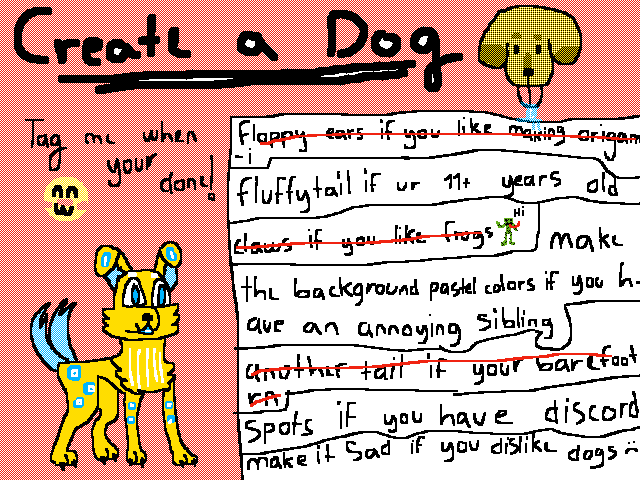 Create a Dog
Tag me when
your
done!
floppy ears if you like making origam
-i
fluffytail if ur 11+ years old
claws if you like frogs
Hi
make
the background pastel colors if you h-
ave an annoying sibling
another tail if your barefoot
rn
Spots if you have discord
make it Sad if you dislike dogs :(